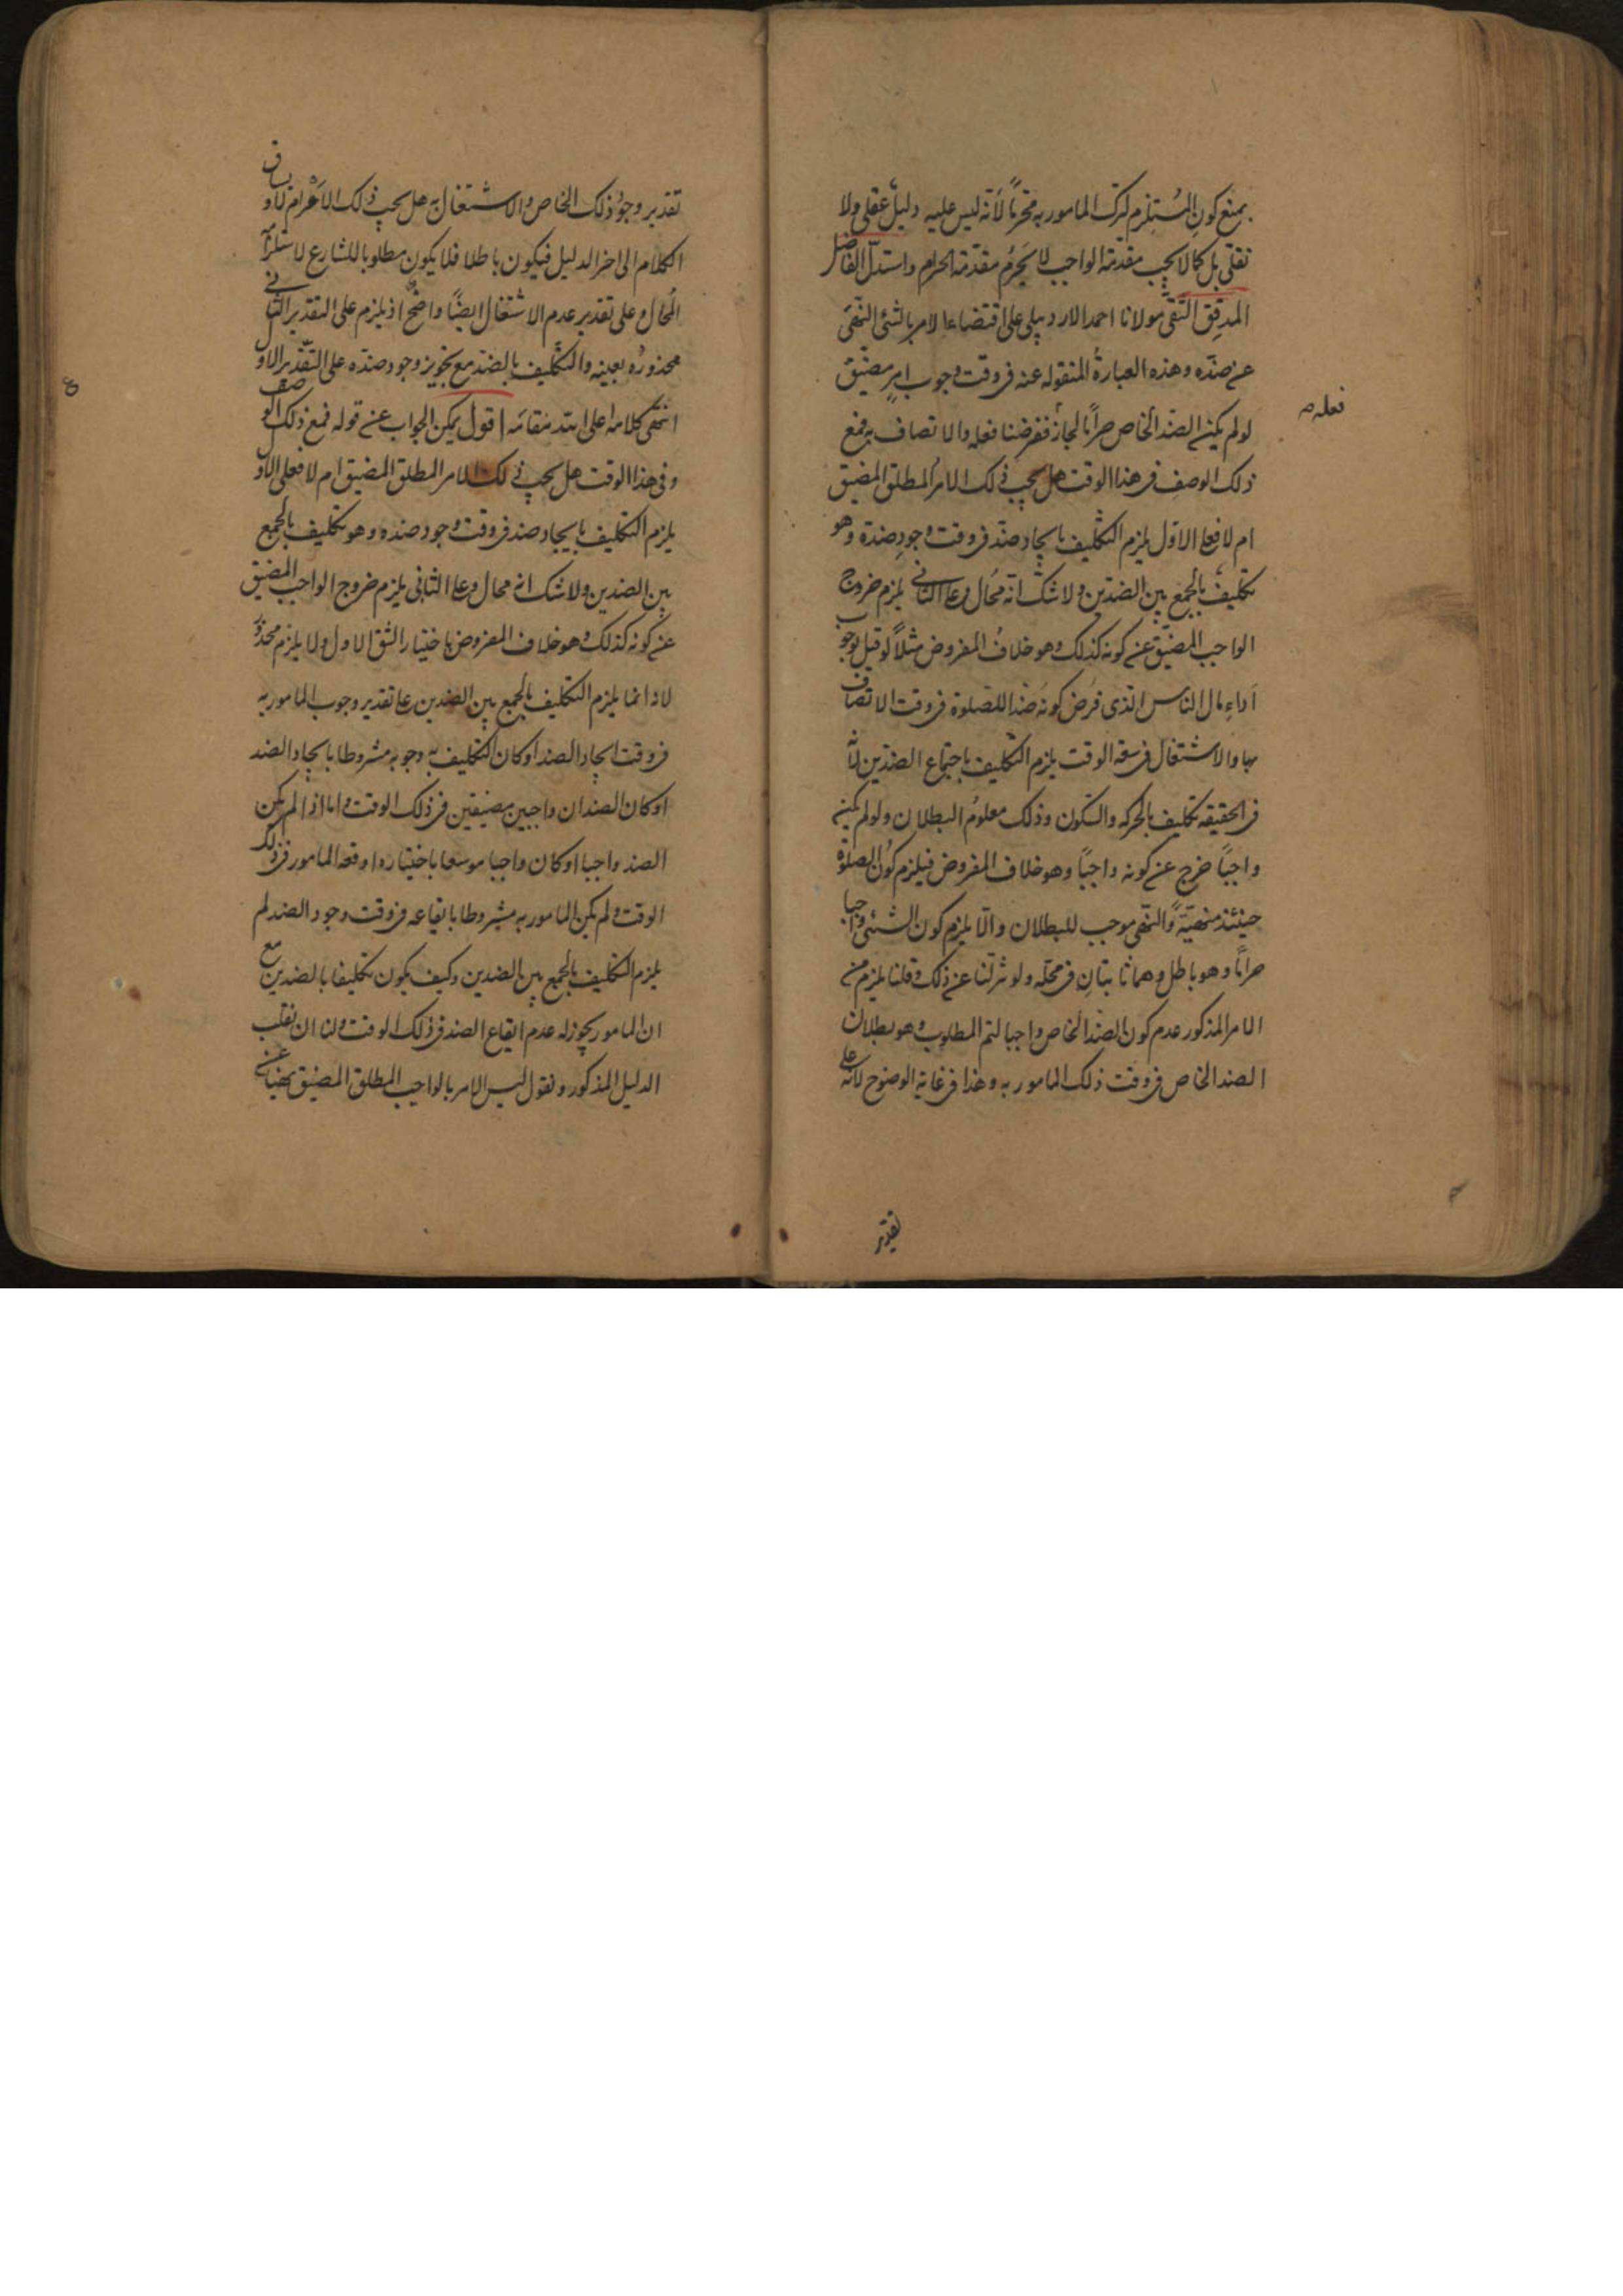 بمنع كون المُستلزم لترك المامور به محرّمًا لأنه ليس عليه دليل عقلى ولا
نقلى بل كما لا يجب مقدّمة الواجب لا يَحرُم مقدّمة الحرام واستدلّ الفاضل
المدقق التقى مولانا احمد الاردبيلى على اقتضاء الامر بالشئ النهى
عن ضدّه وهذه العبارة المنقولة عنه فى وقت وجوب امرٍ مضيّق
لو لم يكن الضد الخاص حرامًا لجاز ففرضنا فعله والاتصاف به فمع
فعله
ذلك الوصف فى هذا الوقت هل يجب ذلك الامر المطلق المضيق
ام لا فعلى الاوّل يلزم التكليف بايجاد ضدّ فى وقت وجودِ ضدّه وهو
تكليف بالجمع بين الضدّين ولا شك انّه محال وعلى الثانى يلزم خروج
الواجب المضيّق عن كونه كذلك وهو خلاف المفروض مثلًا لو قيل بوجوب
اَداءِ مال الناس الذى فرُض كونه ضدا للصلوة فى وقت الاتصاف
بها والاشتغال فى سعة الوقت يلزم التكليف باجتماع الضدّين لأنّه
فى الحقيقة تكليف بالحركة والسكون وذلك معلومُ البطلان ولو لم يكن
واجبًا خرج عن كونه واجبًا وهو خلاف المفروض فيلزم كون الصلوة
حينئذ منهيّة والنّهى موجب للبطلان والّا يلزم كون الشئ واجبا
حرامًا وهو باطل وهما ثابتانِ فى محلّه ولو نزلنا عن ذلك وقلنا يلزم من
الامر المذكور عدم كون الضدّ الخاص واجبا لتم المطلوب وهو بطلان
الضد الخاص فى وقت ذلك المامور به وهذا فى غاية الوضوح لأنّه على
تقدير
تقدير وجود ذلك الخاص والاشتغال به هل يجب ذلك الامر ام لا ويساق
الكلام الى اخر الدليل فيكون باطلا فلا يكون مطلوبا للشارع لاستلزامه
المُحال وعلى تقدير عدم الاشتغال ايضًا واضح اذ يلزم على التقدير الثانى
محذورُه بعينه والتكليف بالضد مع تجويز وجود ضدّه على التقدير الاول
انتهى كلامه اعلى الله مقامَه اقول يمكن الجواب عن قوله فمع ذلك الوصف
وفى هذا الوقت هل يجب ذلك الامر المطلق المضيق ام لا فعلى الاول
يلزم التكليف بايجاد ضد فى وقت وجود ضده وهو تكليف بالجمع
بين الضدين ولا شك انه محال وعلى الثانى يلزم خروج الواجب المضيق
عن كونه كذلك وهو خلاف المفروض باختيار الشق الاول ولا يلزم محذور
لانه انما يلزم التكليف بالجمع بين الضدين على تقدير وجوب المامور به
فى وقت ايجاد الضد او كان التكليف به وجوبه مشروطا بايجاد الضد
او كان الضدان واجبين مضيقين فى ذلك الوقت واما اذا لم يكن
الضد واجبا او كان واجبا موسعا باختياره اوقعه المامور فى ذلك
الوقت ولم يكن المامور به مشروطا بايقاعه فى وقت وجود الضد لم
يلزم التكليف بالجمع بين الضدين وكيف يكون تكليفا بالضدين مع
ان المامور يجوز له عدم ايقاع الضد فى ذلك الوقت ولنا ان نقلب
الدليل المذكور ونقول ليس الامر بالواجب المطلق المضيق